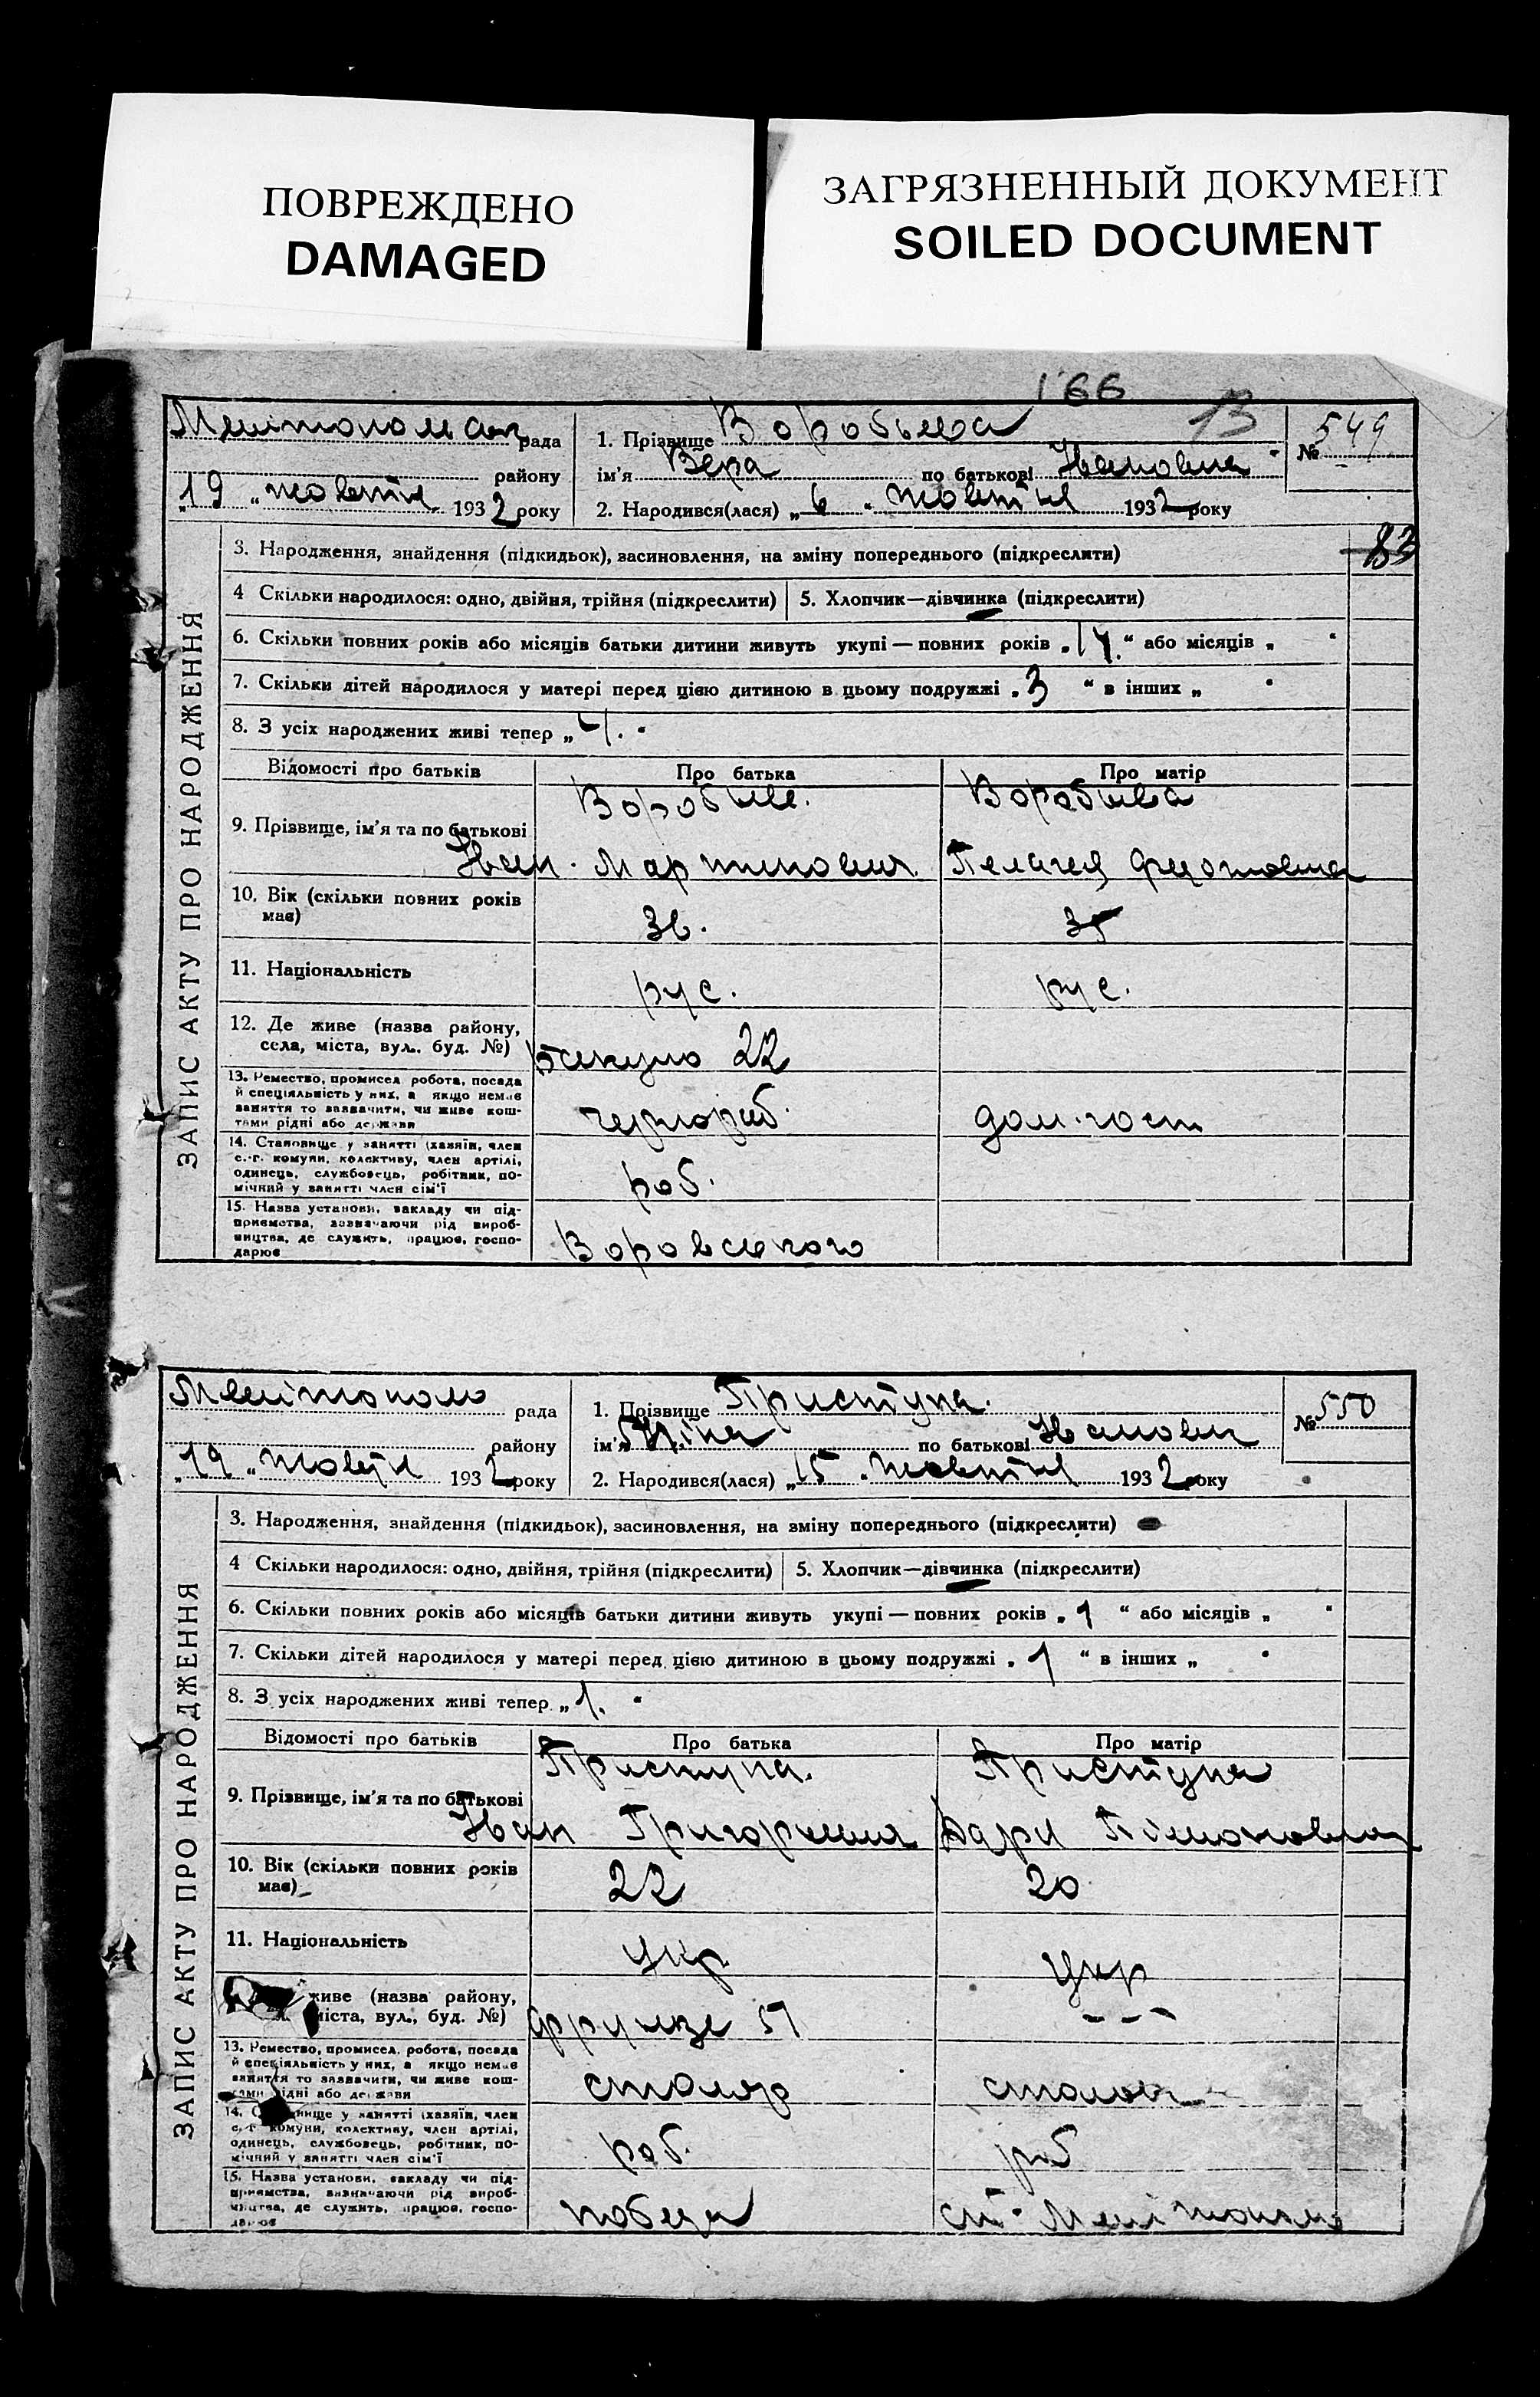 ПОВРЕЖДЕНО
DAMAGED
ЗАГРЯЗНЕННЫЙ ДОКУМЕНТ
SOILED DOCUMENT
166
13
рада
1. Прізвище Воробьева
№ 549
району
ім'я Вера по батькові Ивановна
"19" жовтня 1932 року
2. Народився(лася) "6" жовтня 1932 року
83
ЗАПИС АКТУ ПРО НАРОДЖЕННЯ
3. Народження, знайдення (підкидьок), засиновлення, на зміну попереднього (підкреслити)
4 Скільки народилося: одно, двійня, трійня (підкреслити)
5. Хлопчик—дівчинка (підкреслити)
6. Скільки повних років або місяців батьки дитини живуть укупі — повних років „14“ або місяців „ “
7. Скільки дітей народилося у матері перед цією дитиною в цьому подружжі „3“ в інших „ “
8. З усіх народжених живі тепер „4“
Відомості про батьків
Про батька
Про матір
9. Прізвище, ім'я та по батькові
Воробьев
Воробьева
Иван Мартинович
Пелагея Федотовна
10. Вік (скільки повних років має)
36.
35
11. Національність
рус.
рус.
12. Де живе (назва району, села, міста, вул. буд. №)
22
13. Ремество, промисел робота, посада й спеціяльність у них, а якщо немає заняття то зазначити, чи живе коштами рідні або держави
чернораб.
дом. госп
14. Становище у занятті (хазяїн, член с.-г. комуни, колективу, член артілі, одинець, службовець, робітник, помічний у занятті член сім'ї
роб.
15. Назва установи, закладу чи підприємства, зазначаючи рід виробництва, де служить, працює, господарює
Воровского
Мелітополь рада
1. Прізвище Приступа.
№ 550
району
ім'я Ніна по батькові
"19" жовтня 1932 року
2. Народився(лася) "15" жовтня 1932 року
ЗАПИС АКТУ ПРО НАРОДЖЕННЯ
3. Народження, знайдення (підкидьок), засиновлення, на зміну попереднього (підкреслити)
4 Скільки народилося: одно, двійня, трійня (підкреслити)
5. Хлопчик—дівчинка (підкреслити)
6. Скільки повних років або місяців батьки дитини живуть укупі — повних років „1“ або місяців „ “
7. Скільки дітей народилося у матері перед цією дитиною в цьому подружжі „1“ в інших „ “
8. З усіх народжених живі тепер „1.“
Відомості про батьків
Про батька
Про матір
9. Прізвище, ім'я та по батькові
Приступа.
Приступа
Иван Григорьевич
Дария
10. Вік (скільки повних років має)
22
20
11. Національність
укр
укр
живе (назва району, міста, вул., буд. №)
Фрунзе 51
- - -
13. Ремество, промисел, робота, посада й спеціяльність у них, а якщо немає заняття то зазначити, чи живе коштами рідні або держави
столяр
14. Становище у занятті (хазяїн, член с.-г. комуни, колективу, член артілі, одинець, службовець, робітник, помічний у занятті член сім'ї
роб.
роб
15. Назва установи, закладу чи підприємства, зазначаючи рід виробництва, де служить, працює, господарює
победа
ст. Мелітополь